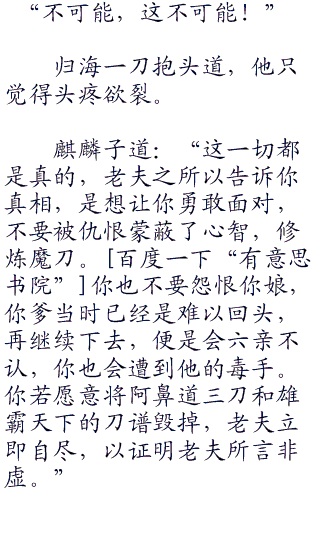 “不可能，这不可能！”
归海一刀抱头道，他只
觉得头疼欲裂。
麒麟子道：“这一切都
是真的，老夫之所以告诉你
真相，是想让你勇敢面对，
不要被仇恨蒙蔽了心智，修
炼魔刀。[百度一下“有意思
书院”]你也不要怨恨你娘，
你爹当时已经是难以回头，
再继续下去，便是会六亲不
认，你也会遭到他的毒手。
你若愿意将阿鼻道三刀和雄
霸天下的刀谱毁掉，老夫立
即自尽，以证明老夫所言非
虚。”